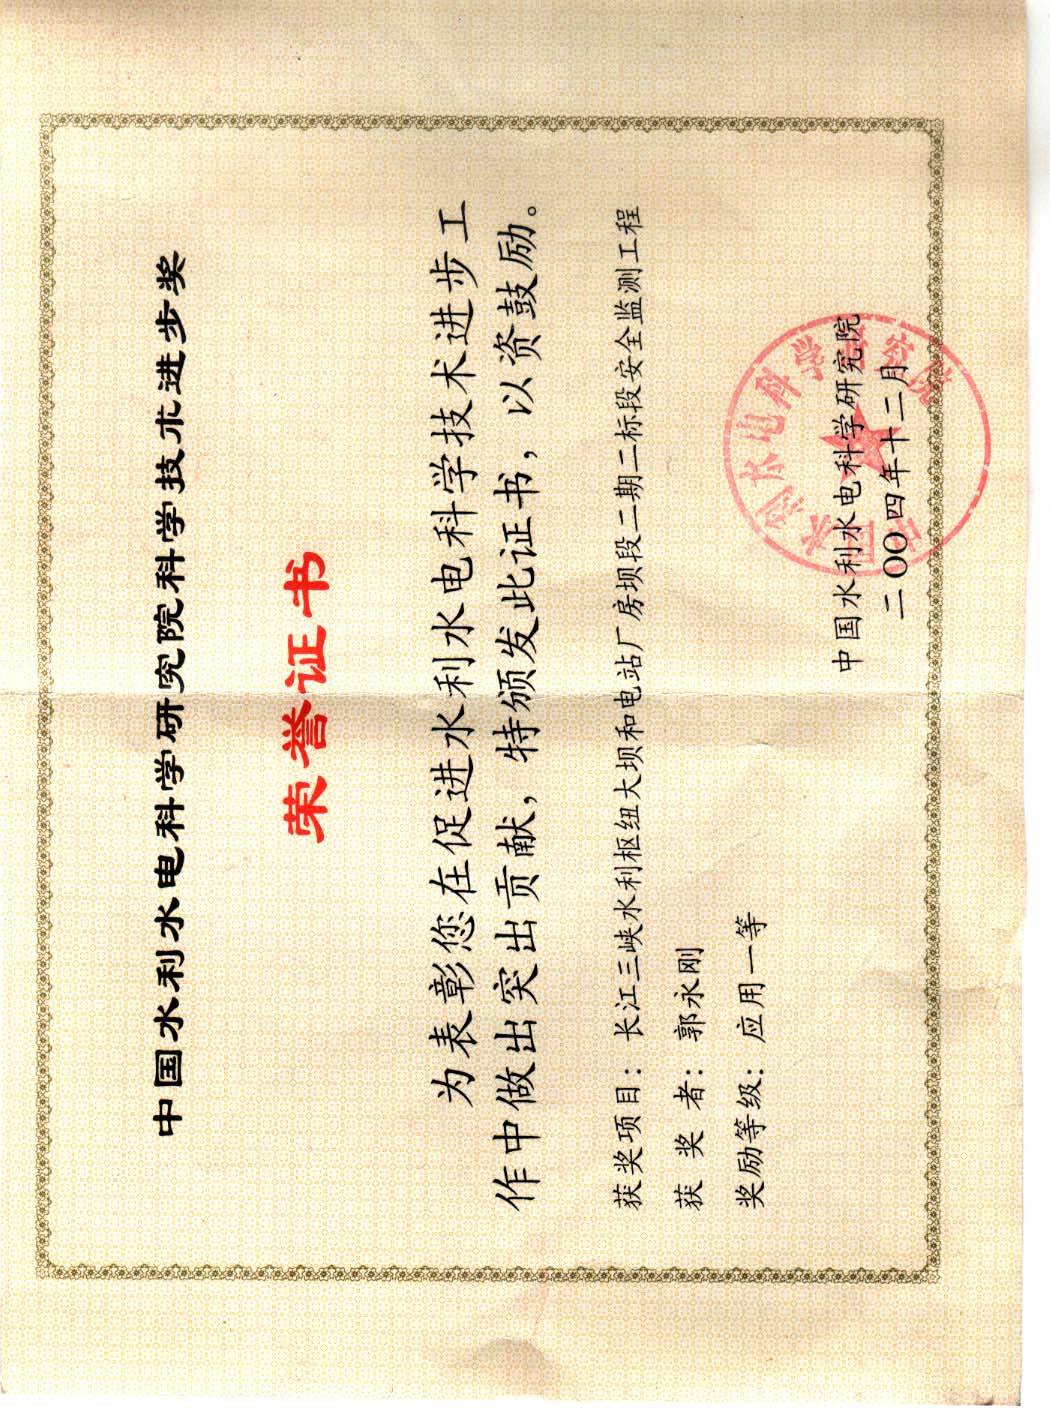 中国水利水电科学研究院科学技术进步奖
荣誉证书
为表彰您在促进水利水电科学技术进步工
作中做出突出贡献，特颁发此证书，以资鼓励。
获奖项目：长江三峡水利枢纽大坝和电站厂房坝段二期二标段安全监测工程
获 奖 者：郭永刚
奖励等级：应用一等
中国水利水电科学研究院
二〇〇四年十二月
中国水利水电科学研究院